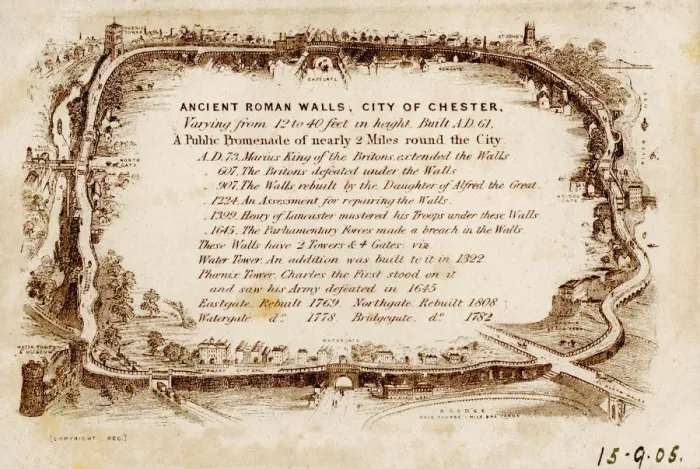 PHOENIX
TOWER
EASTGATE
NEWGATE
ST JOHNS
ANCIENT ROMAN WALLS, CITY OF CHESTER,
Varying from 12 to 40 feet in height. Built A.D. 61,
A Public Promenade of nearly 2 Miles round the City.
A.D. 73, Marius King of the Britons, extended the Walls
607, The Britons defeated under the Walls
907, The Walls rebuilt by the Daughter of Alfred the Great
1224, An Assessment for repairing the Walls.
1399, Henry of Lancaster mustered his Troops under these Walls
1645, The Parliamentary Forces made a breach in the Walls
These Walls have 2 Towers & 4 Gates. viz.
Water Tower, An addition was built to it in 1322
Phœnix Tower, Charles the First stood on it
and saw his Army defeated in 1645
Eastgate, Rebuilt 1769 Northgate, Rebuilt 1808
Watergate do. 1778 Bridgegate, do. 1782
NORTH
GATE
BRIDGE
GATE
WATER TOWER
& MUSEUM
INFIRMARY
CITY GAOL
WATERGATE
ROODEE
RACE COURSE - MILE &
[COPYRIGHT REG.]
15-9.05.